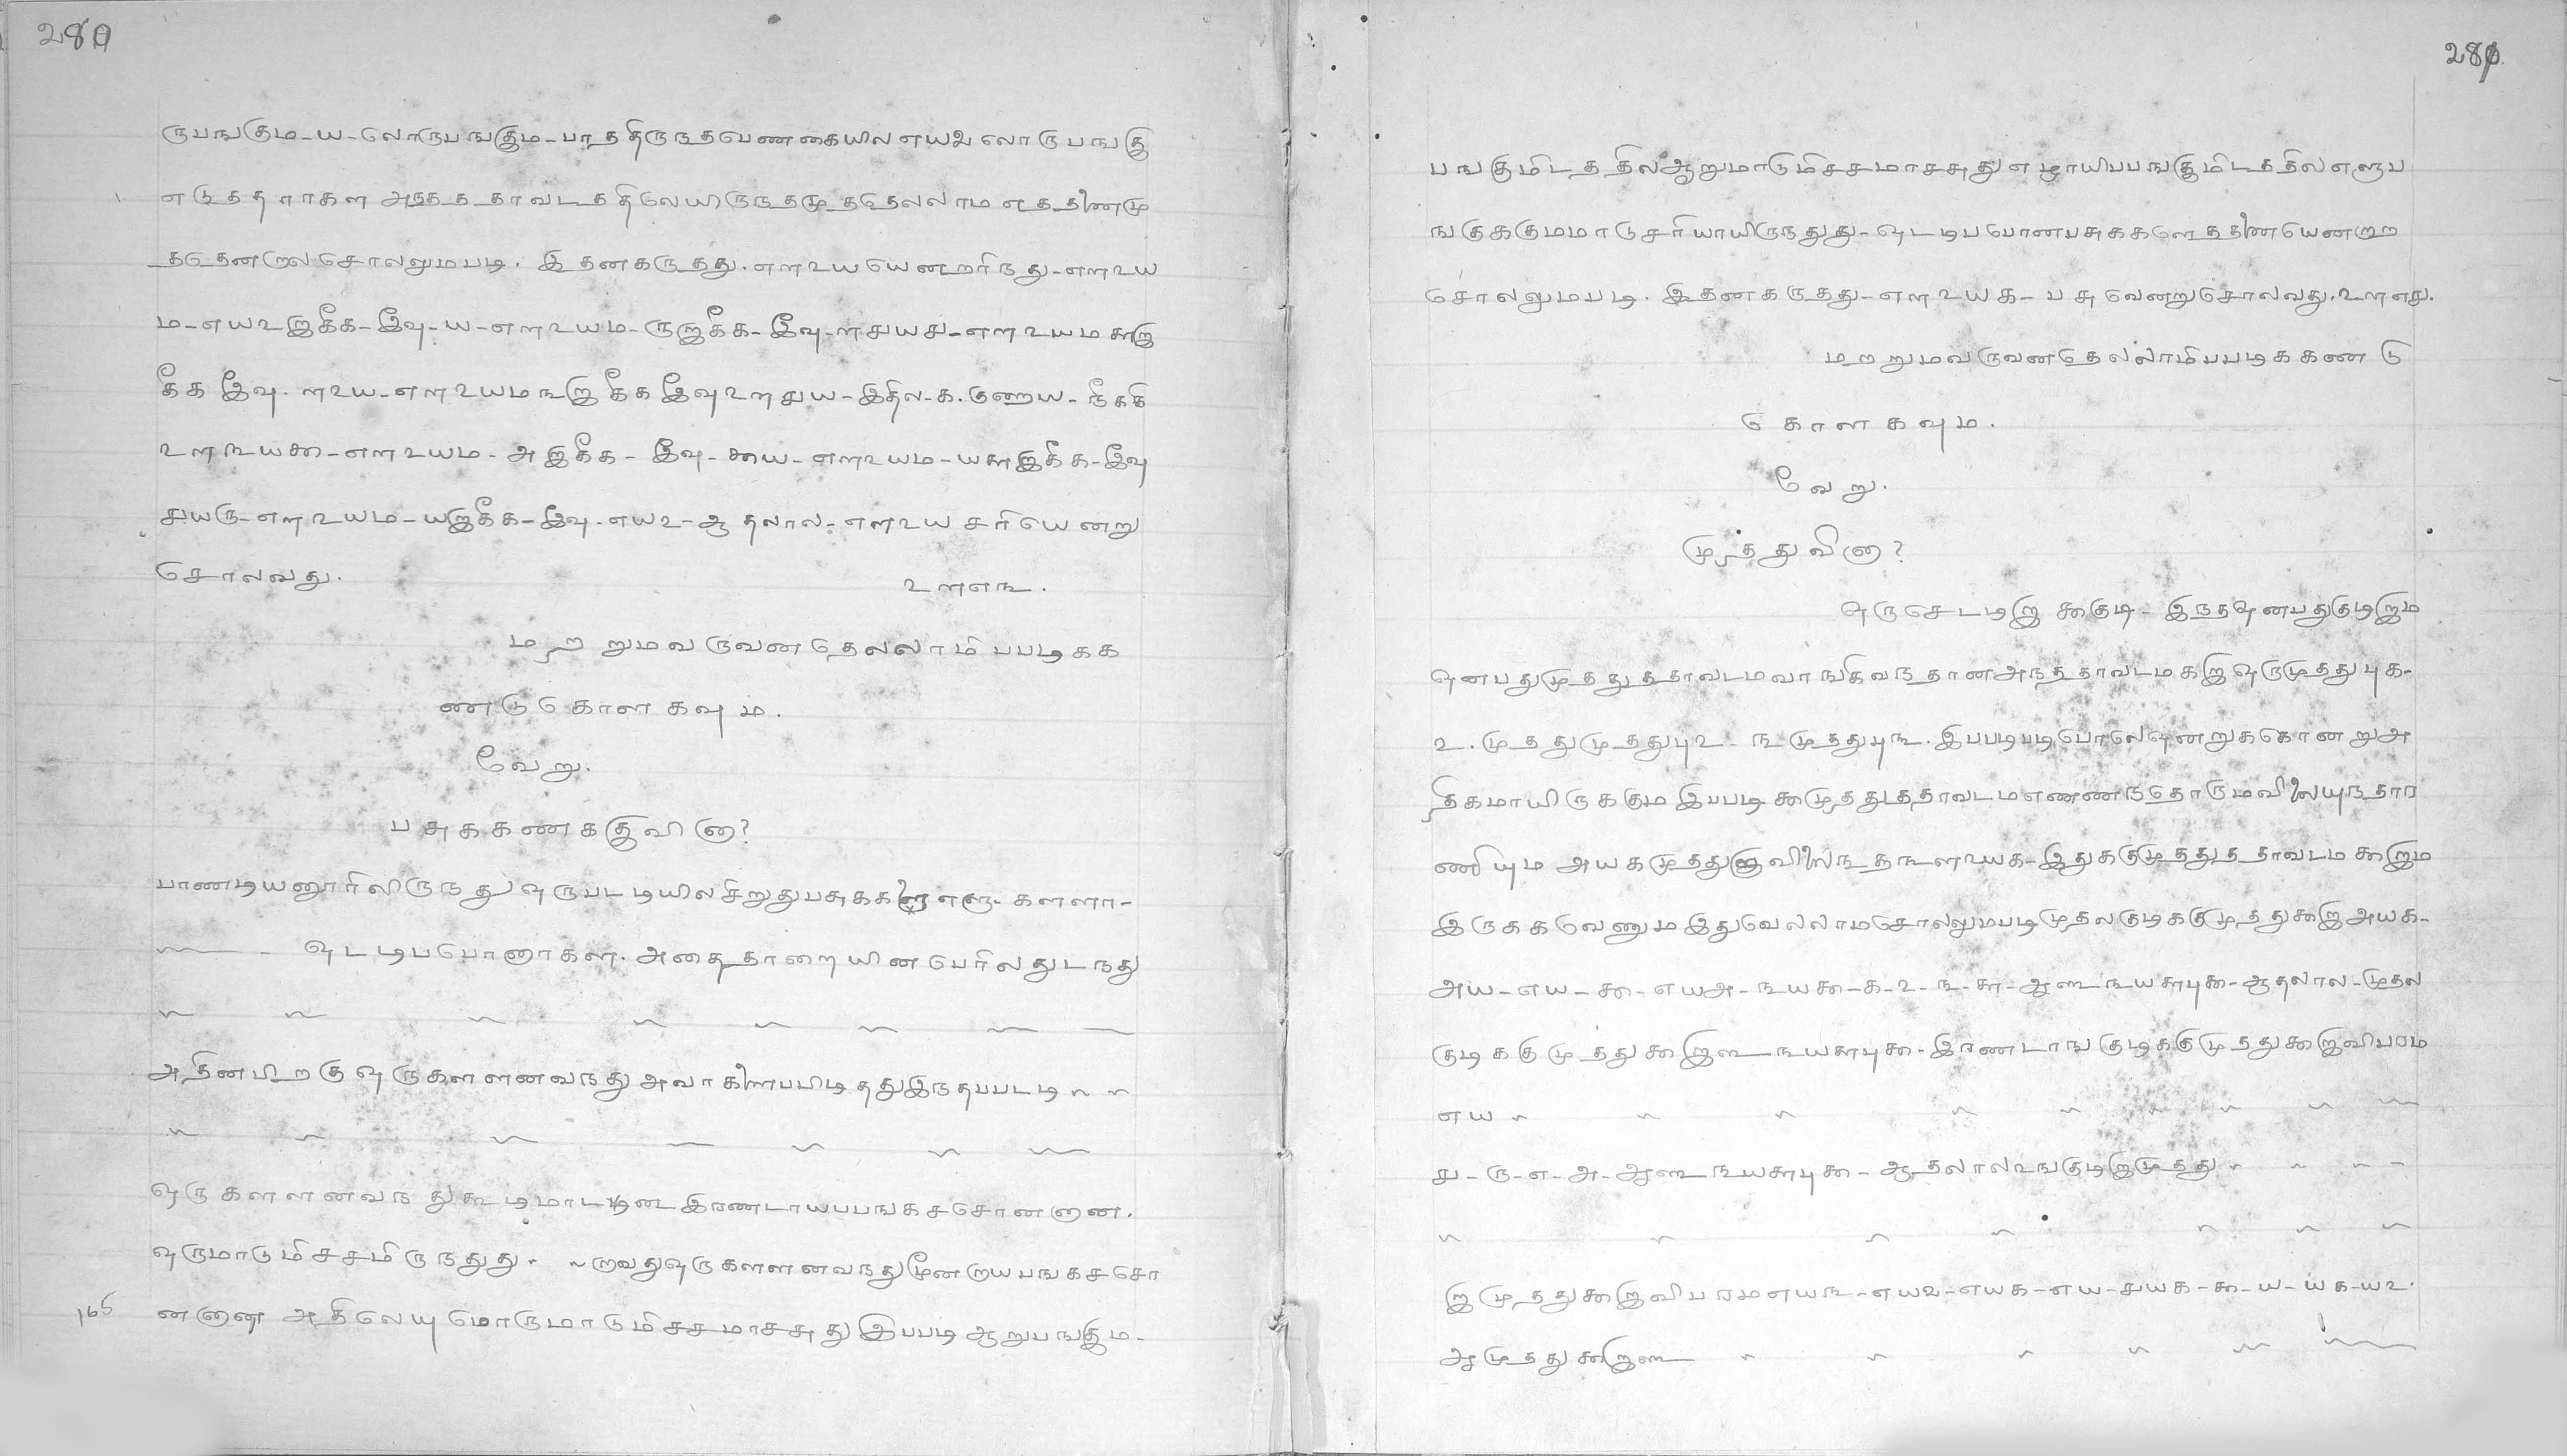 280
ருபஙகும-ய-லொருபஙகும-பாததிருநதவெணகையில எயஉ லொருபஙகு
எடுததாாகள அநதக தாவடததிலேயிருநதமுததெலலாம எததணைமு
ததெனறு சொலலுமபடி. இதனகருதது. எ௱உய யெனறரிநது-எ௱உய
ம-எயஉஇககீக-இவு-ய-எ௱உயம-ருஇககீக-இவு-௱சுயசு-எ௱உயம சுஇ
ககீக இவு. ௱உய-எ௱உயம ஙஇ ககீக இவு உ௱சுய-இதில-க. குறைய-நீககி
உ௱ஙயகூ-எ௱உயம-அஇககீக-இவு-கூய-எ௱உயம-யசுஇககீக-இவு
சுயரு-எ௱உயம-யஇககீக-இவு-எயஉ-ஆதலால-எ௱உய சரியெனறு
சொலவது. உ௱எங.
மறறுமவருவனதெலலாமிபபடிகக
ணடுகொளகவும.
வேறு.
பசுககணககுவினா?
பாணடியனூரிலிருநது ஒருபடடியில சிறுதுபசுககளை எளு. களளா-
ஒடடிபபொனாகள. அதைதாறையின பெரில துடநது
அதினபிறகு ஒருகளளனவநது அவாகளைபபிடிதது இநதபபடடி
ஒருகளளனவநதுகூடிமாடடினை இரணடாயபபஙகசசொனனான.
ஒருமாடுமிசசமிருநதுது. றுவதுஒருகளளனவநதுமூனறாயபஙகசசொ
165 னனான அதிலெயுமொருமாடுமிசசமாசசுது இபபடி ஆறுபஙகும-
281
பஙகுமிடததில ஆறுமாடுமிசசமாசசுது எழாயிபபஙகுமிடததில எளுப
ஙகுககுமமாடு சரியாயிருநதுது-ஒடடிபபொனபசுககளெததணையெனறு
சொலலுமபடி. இதனகருதது-எ௱உயக-பசுவெனறுசொலவது. உ௱எசு.
மறறுமவருவனதெலலாமிபபடிககணடு
கொளகவும.
வேறு.
முததுவினா?
ஒருசெடடிஇ கூகுடி-இநதஒனபதுகுடிஇம
ஒனபதுமுததுததாவடமவாஙகிவநதான அநததாவடமகஇ ஒருமுததுபுக-
உ. முததுமுததுபுஉ-ங முததுபுங. இபபடிபடிபொலெ ஒனறுககொனறு அ
திகமாயிருககும இபபடி கூமுததுததாவடம எணணநதொருமவிலையுநதார
ணியும அயக முததுஞவிலைநத ஙள௱உயக-இதுககுமுததுததாவடம கூஇம
இருககவெணும இதுவெலலாமசொலலுமபடி முதலகுடிககுமுததுகூஇ அயக-
அய-எய-கூ-எயஅ-ஙயகூ-க-உ-ங-சு-ஆள ஙயசுபுகூ-ஆதலால-முதல
குடிககுமுததுகூஇள ஙயசுபுகூ-இரணடாஙகுடிககுமுததுகூஇவிபரம
எய
சு-ரு-எ-அ-ஆள ஙயசுபுகூ-ஆதலால உஙகுடிஇமுதது
இ முததுகூஇவிபரம எயங-எயஉ-எயக-எய-சுயக-கூ-ய-யக-யஉ.
ஆ முததுகூஇள